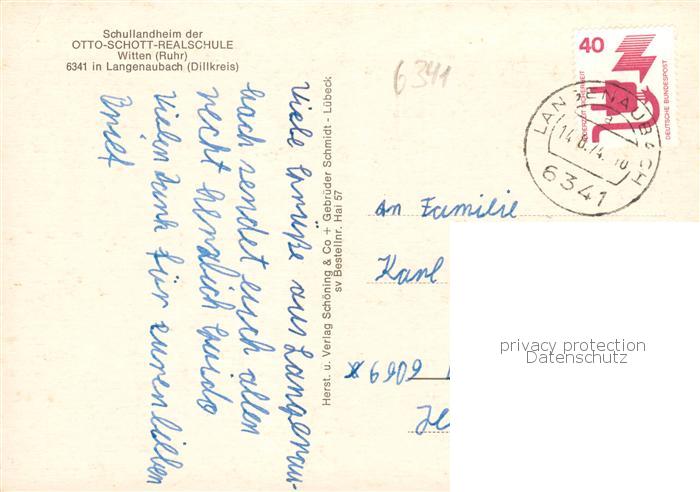 Schullandheim der
OTTO-SCHOTT-REALSCHULE
Witten (Ruhr)
6341 in Langenaubach (Dillkreis)
Viele Grüße aus Langenau-
bach sendet euch allen
recht herzlich Guido
Vielen Dank für euren lieben
Brief
Herst. u. Verlag Schöning & Co + Gebrüder Schmidt - Lübeck
sv Bestellnr. Hai 57
6341
40
JEDERZEIT SICHERHEIT
DEUTSCHE BUNDESPOST
LANGENAUBACH
14.6.74.-10
6341
An Familie
Karl
privacy protection
Datenschutz
6609